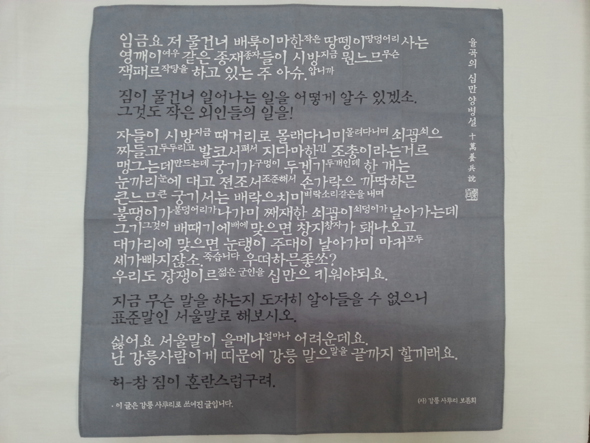 율곡의 십만양병설 十萬養兵說
임금요 저 물건너 배룩이마한작은 땅뗑이땅덩어리 사는
영깨이여우 같은 종재종자들이 시방지금 뭔느므무슨
잭패르작당을 하고 있는 주 아슈.압니까
짐이 물건너 일어나는 일을 어떻게 알수 있겠소.
그것도 작은 외인들의 일을!
자들이 시방지금 때거리로 몰래다니미몰려다니며 쇠꼽쇠으
짜들고두두리고 발코서펴서 지다마한긴 조총이라는거르
맹그는데만드는데 궁기가구멍이 두겐기두개인데 한 개는
눈까리눈에 대고 젼조서조준해서 손가락으 까딱하믄
큰느므큰 궁기서는 배락으치미벼락소리같은을 내며
불땡이가불덩어리가 나가미 째재한 쇠꼽이쇠덩이가 날아가는데
그기그것이 배때기에배에 맞으면 창지창자가 퇘나오고
대가리에 맞으면 눈탱이 주대이 날아가미 마커모두
세가빠지잖소.죽습니다 우떠하믄좋쏘?
우리도 장쟁이르젊은 군인을 십만으 키워야되요.
지금 무슨 말을 하는지 도저히 알아들을 수 없으니
표준말인 서울말로 해보시오.
싫어요 서울말이 을메나얼마나 어려운데요.
난 강릉사람이게 띠문에 강릉 말으말을 끝까지 할끼래요.
허-참 짐이 혼란스럽구려.
- 이 글은 강릉 사투리로 쓰여진 글입니다.
(사) 강릉 사투리 보존회